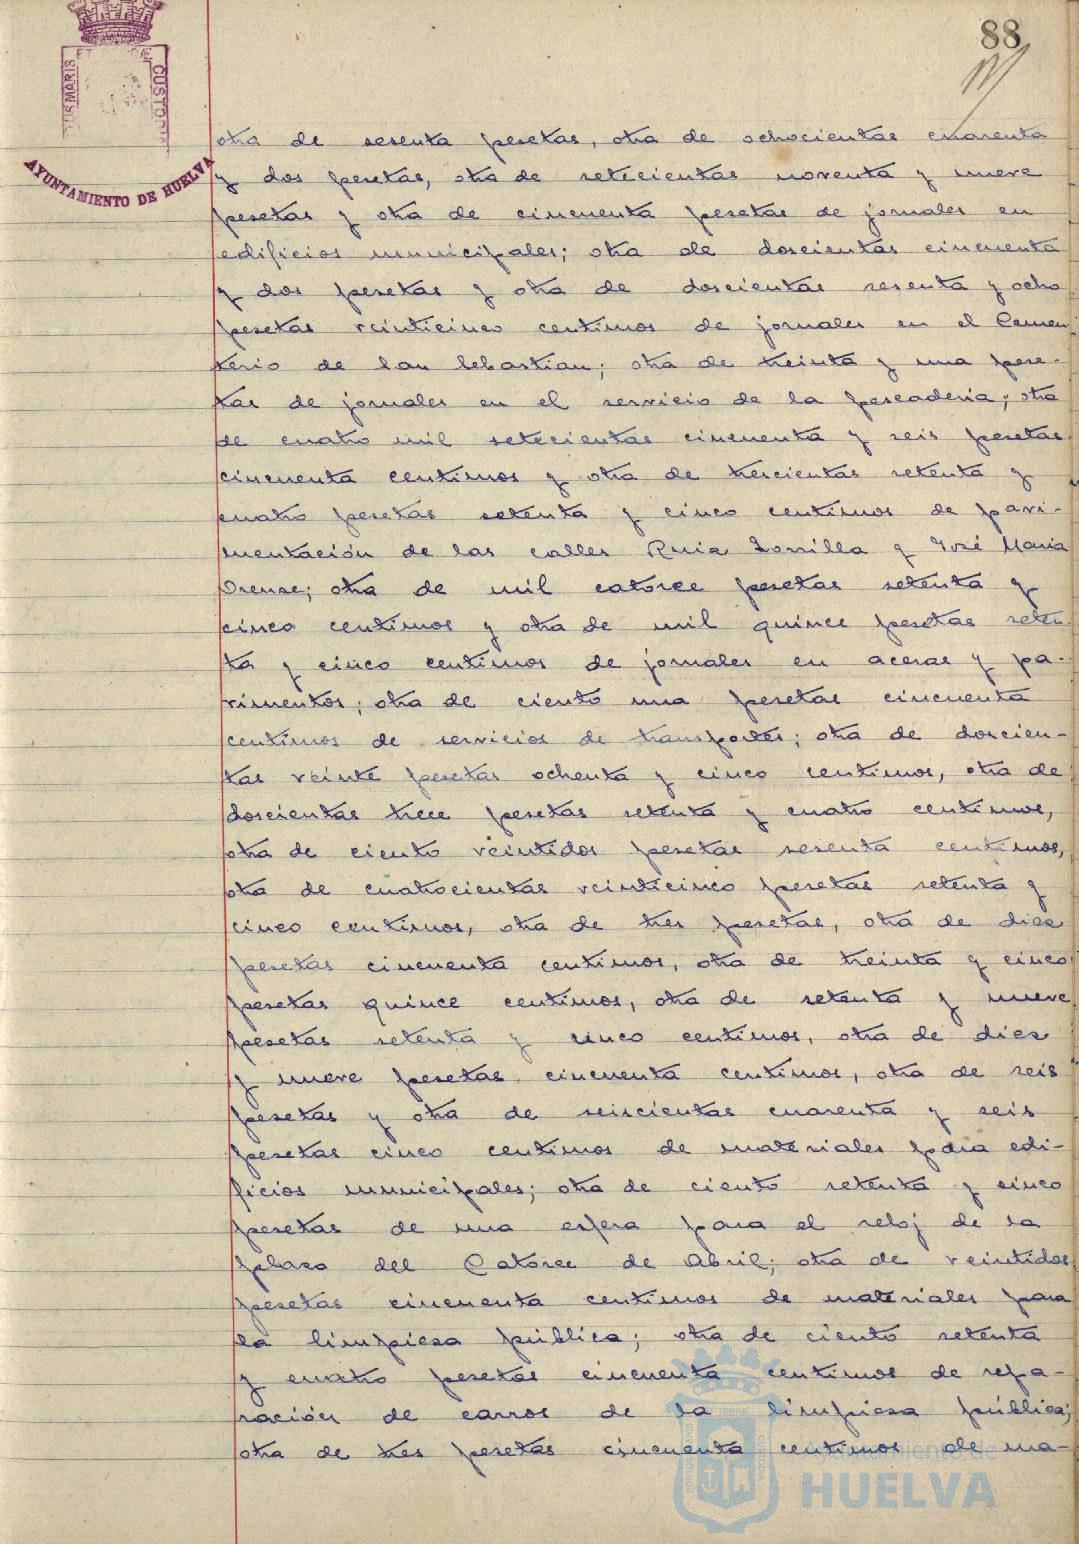 88
US MARIS ET
CUSTODI
AYUNTAMIENTO DE HUELVA
otra de sesenta pesetas, otra de ochocientas cuarenta
y dos pesetas, otra de setecientas noventa y nueve
pesetas y otra de cincuenta pesetas de jornales en
edificios municipales; otra de doscientas cincuenta
y dos pesetas y otra de doscientas sesenta y ocho
pesetas veinticinco centimos de jornales en el Cemen
terio de San Sebastian; otra de treinta y una pese-
tas de jornales en el servicio de la pescaderia; otra
de cuatro mil setecientas cincuenta y seis pesetas
cincuenta centimos y otra de trescientas setenta y
cuatro pesetas setenta y cinco centimos de pavi-
mentación de las calles Ruiz Zorrilla y José Maria
Orense; otra de mil catorce pesetas setenta y
cinco centimos y otra de mil quince pesetas seten
ta y cinco centimos de jornales en aceras y pa-
vimentos; otra de ciento una pesetas cincuenta
centimos de servicios de transportes; otra de doscien-
tas veinte pesetas ochenta y cinco centimos, otra de
doscientas trece pesetas setenta y cuatro centimos,
otra de ciento veintidos pesetas sesenta centimos,
otra de cuatrocientas veinticinco pesetas setenta y
cinco centimos, otra de tres pesetas, otra de diez
pesetas cincuenta centimos, otra de treinta y cinco
pesetas quince centimos, otra de setenta y nueve
pesetas setenta y cinco centimos, otra de diez
y nueve pesetas cincuenta centimos, otra de seis
pesetas y otra de seiscientas cuarenta y seis
pesetas cinco centimos de materiales para edi-
ficios municipales; otra de ciento setenta y cinco
pesetas de una esfera para el reloj de la
plaza del Catorce de Abril; otra de veintidos
pesetas cincuenta centimos de materiales para
la limpieza pública; otra de ciento setenta
y cuatro pesetas cincuenta centimos de repa-
ración de carros de la limpieza pública;
otra de tres pesetas cincuenta centimos de ma-
Ayuntamiento de
HUELVA